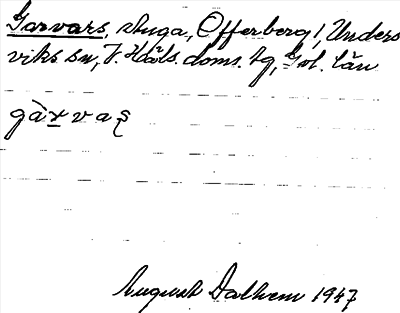 Garvars, stuga, Offerberg 1, Unders
viks sn, V. Häls. doms. tg, Gvl. län
gàrvaʂ
August Dalhem 1947